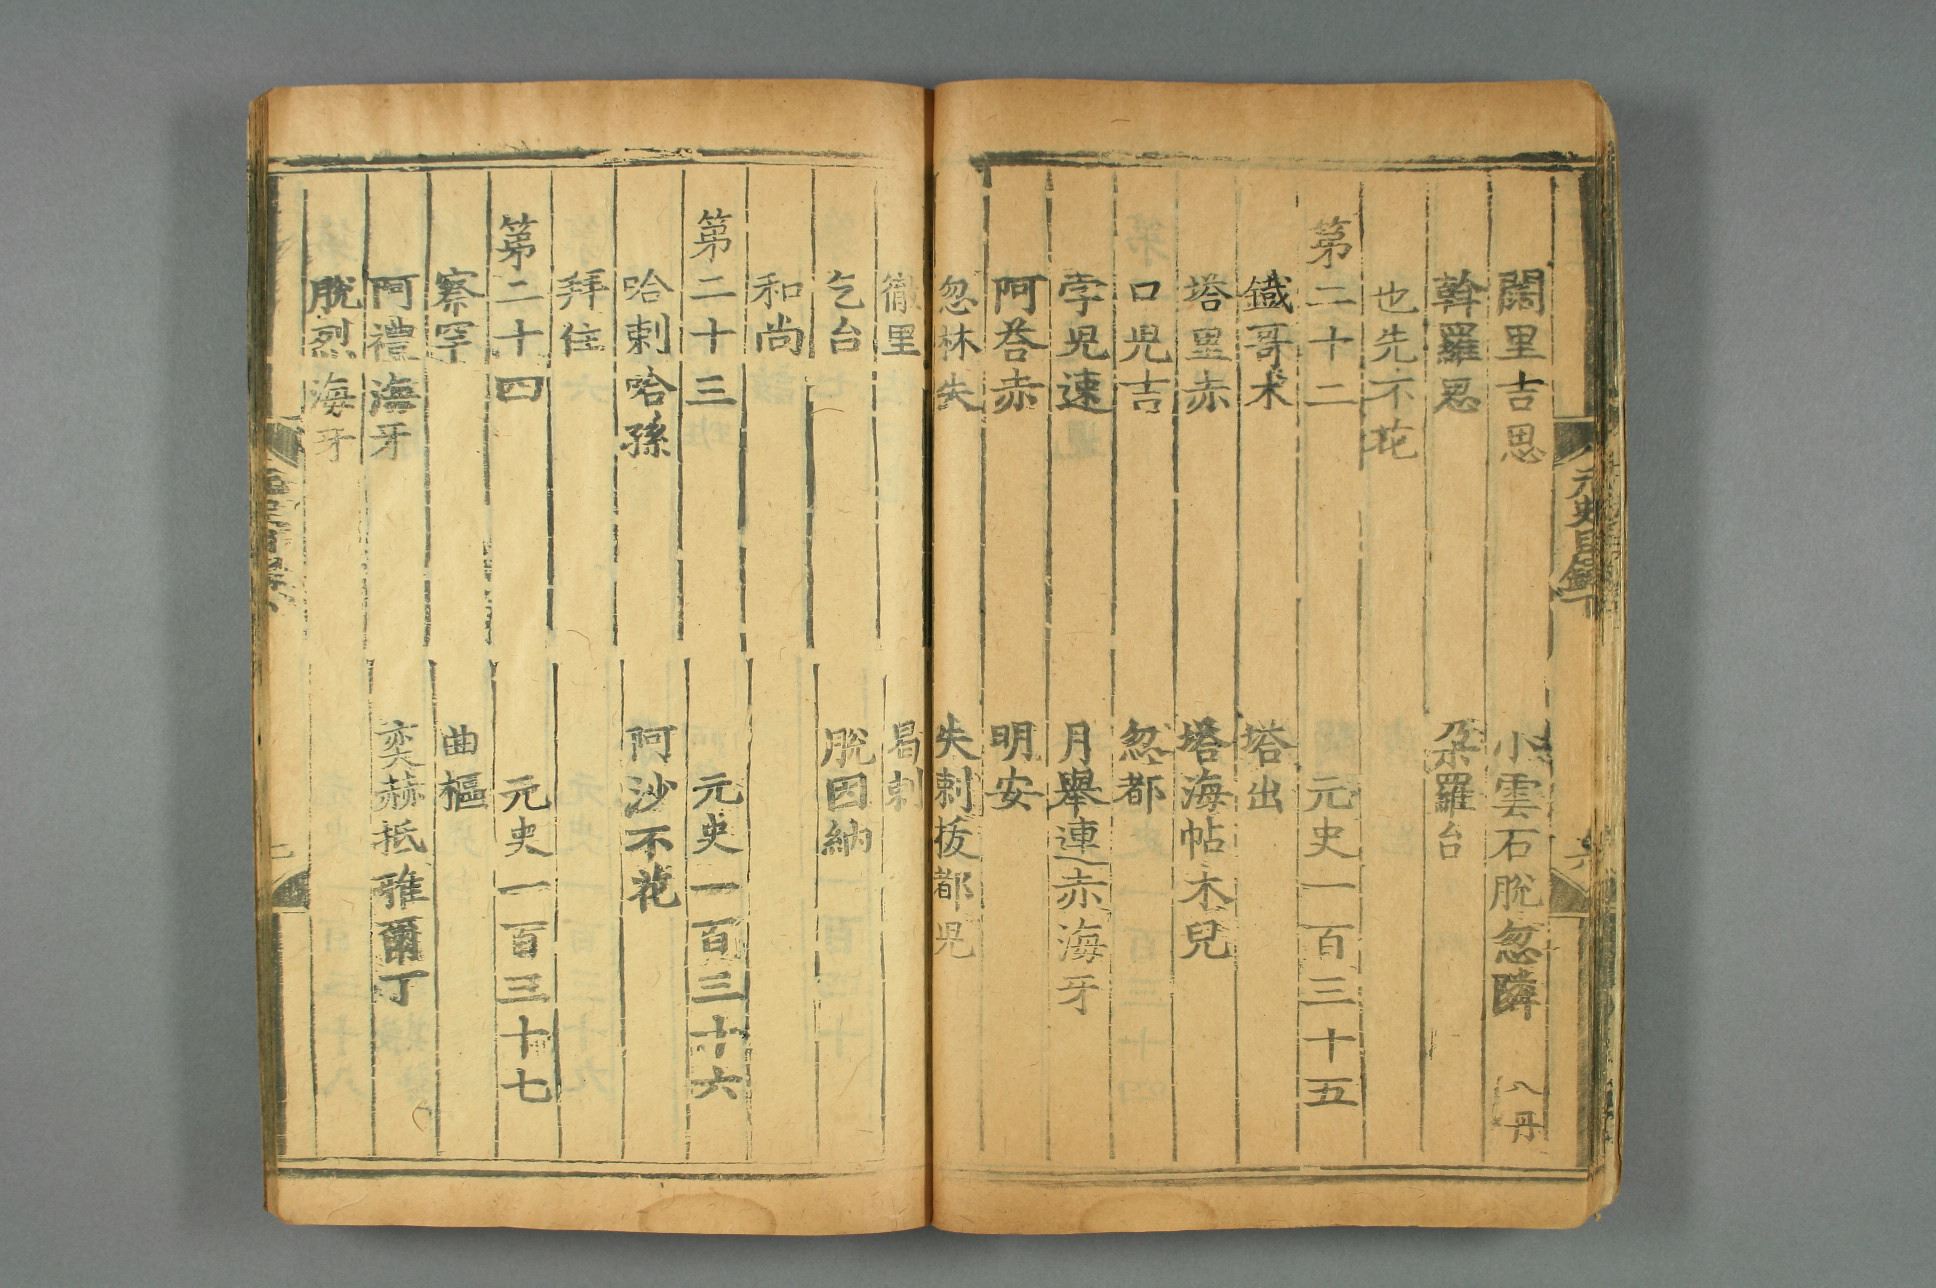 闊里吉思 小雲石脫忽隣 八丹
斡羅思 朶羅台
也先不花
第二十二 元史一百三十五
鐵哥术 塔出
塔里赤 塔海帖木兒
口兒吉 忽都
孛兒速 月舉連赤海牙
阿荅赤 明安
忽林失 失剌拔都兒
徹里 曷剌
乞台 脫因納
和尚
第二十三 元史一百三十六
哈剌哈孫 阿沙不花
拜住
第二十四 元史一百三十七
察罕 曲樞
阿禮海牙 奕赫抵雅爾丁
脫烈海牙
元史目錄下
六